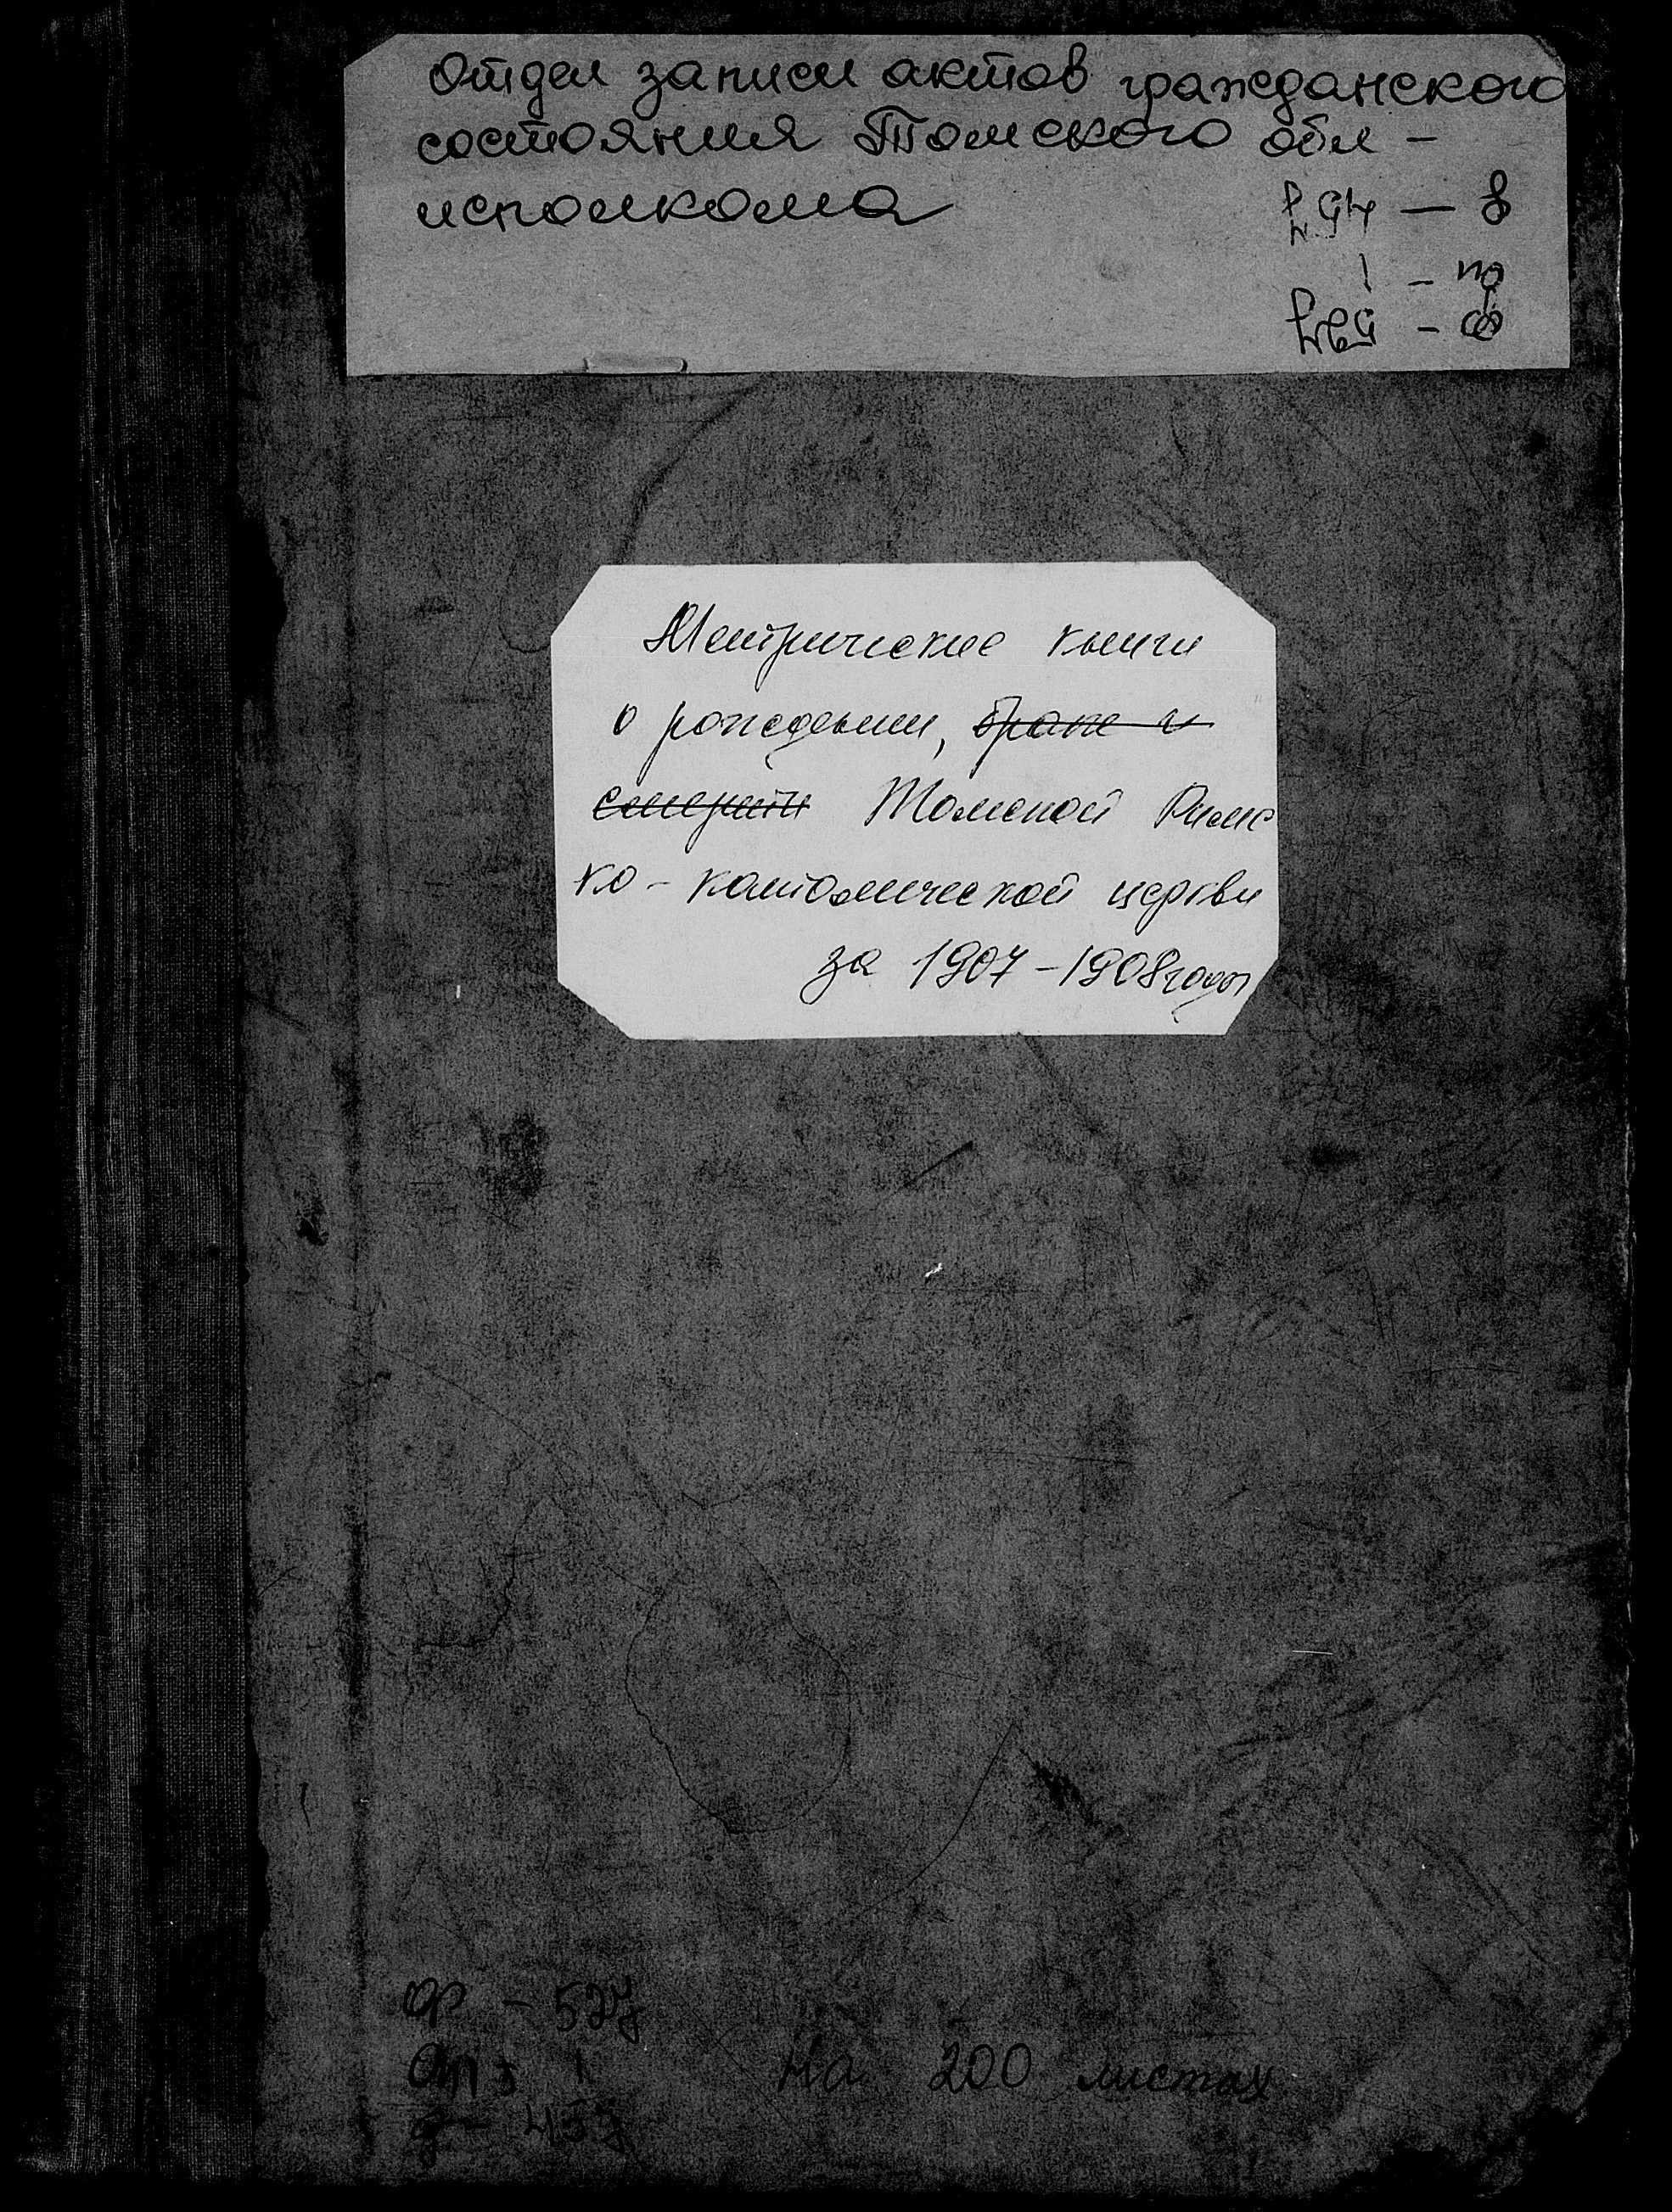 Отдел записи актов гражданского
состояния Томского обл-
исполкома
Метрические книги
о рождении, браке и
смерти Томской Римс
ко-католической церкви
за 1907-1908 годы
ф - 527
оп - 1
д - 457
на 200 листах